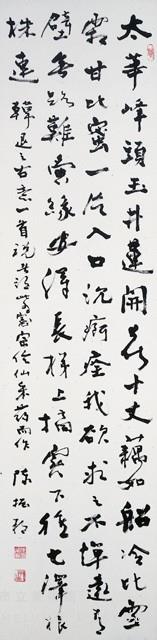 太華峰頭玉井蓮開花十丈藕如船冷比雪
霜甘比蜜一片入口沉痾痊我欲求之不憚遠青
壁無路難夤緣安得長梯上摘實下種七澤根
株連 韓退之古意一首說者 仙采药而作 陳振